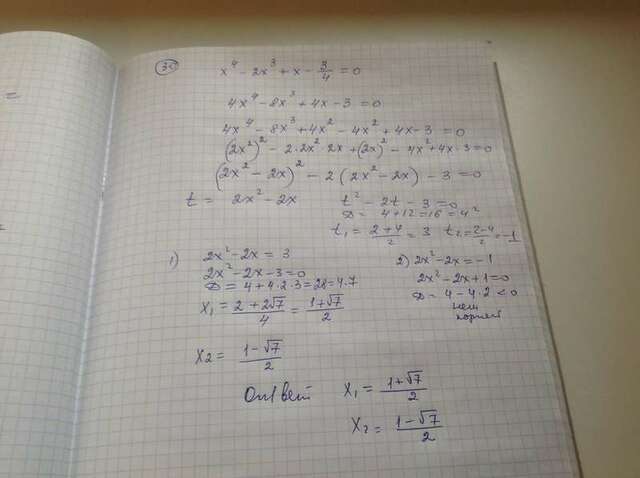 35
x⁴ - 2x³ + x - 3/4 = 0
4x⁴ - 8x³ + 4x - 3 = 0
4x⁴ - 8x³ + 4x² - 4x² + 4x - 3 = 0
(2x²)² - 2·2x²·2x + (2x)² - 4x² + 4x - 3 = 0
(2x² - 2x)² - 2(2x² - 2x) - 3 = 0
t = 2x² - 2x t² - 2t - 3 = 0
D = 4 + 12 = 16 = 4²
t₁ = (2+4)/2 = 3 t₂ = (2-4)/2 = -1
1) 2x² - 2x = 3
2x² - 2x - 3 = 0
D = 4 + 4·2·3 = 28 = 4·7
x₁ = (2+2√7)/4 = (1+√7)/2
x₂ = (1-√7)/2
2) 2x² - 2x = -1
2x² - 2x + 1 = 0
D = 4 - 4·2 < 0
нет
корней
Ответ x₁ = (1+√7)/2
x₂ = (1-√7)/2